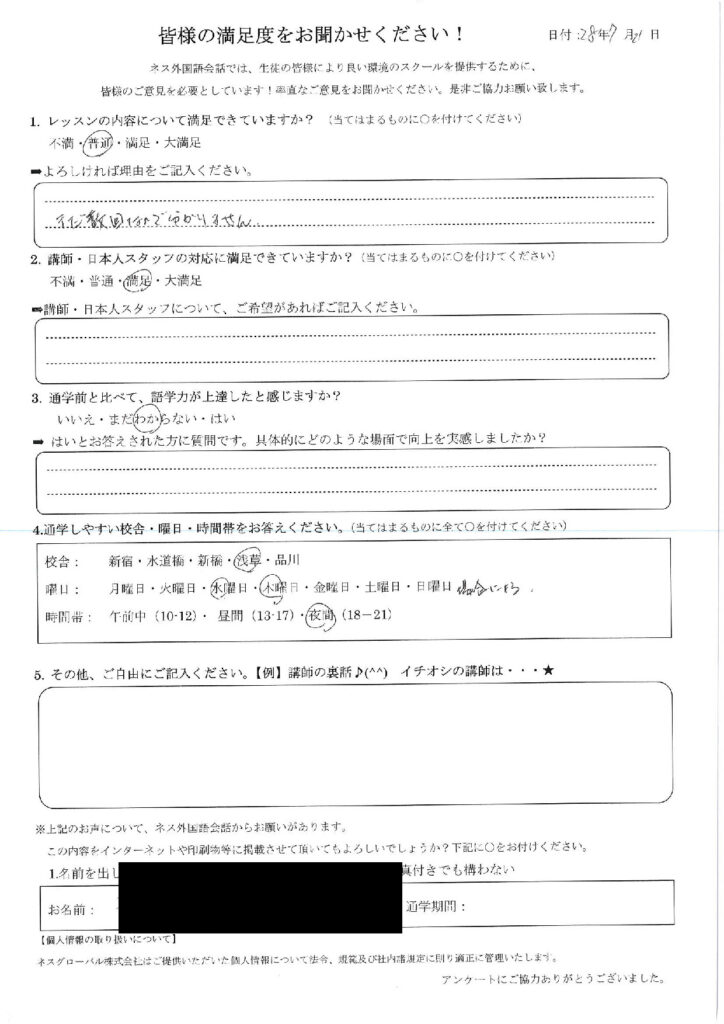 皆様の満足度をお聞かせください！
日付：28年7月21日
ネス外国語会話では、生徒の皆様により良い環境のスクールを提供するために、
皆様のご意見を必要としています！率直なご意見をお聞かせください。是非ご協力お願い致します。
1. レッスンの内容について満足できていますか？（当てはまるものに○を付けてください）
不満・普通・満足・大満足
➡よろしければ理由をご記入ください。
まだ数回なので分かりません。
2. 講師・日本人スタッフの対応に満足できていますか？（当てはまるものに○を付けてください）
不満・普通・満足・大満足
➡講師・日本人スタッフについて、ご希望があればご記入ください。
3. 通学前と比べて、語学力が上達したと感じますか？
いいえ・まだわからない・はい
➡ はいとお答えされた方に質問です。具体的にどのような場面で向上を実感しましたか？
4.通学しやすい校舎・曜日・時間帯をお答えください。（当てはまるものに全て○を付けてください）
校舎： 新宿・水道橋・新橋・浅草・品川
曜日： 月曜日・火曜日・水曜日・木曜日・金曜日・土曜日・日曜日 場合による.
時間帯： 午前中（10-12）・ 昼間（13-17）・夜間（18－21）
5. その他、ご自由にご記入ください。【例】講師の裏話♪(^^) イチオシの講師は・・・★
※上記のお声について、ネス外国語会話からお願いがあります。
この内容をインターネットや印刷物等に掲載させて頂いてもよろしいでしょうか？下記に○をお付けください。
1.名前を出し 真付きでも構わない
お名前： 通学期間：
【個人情報の取り扱いについて】
ネスグローバル株式会社はご提供いただいた個人情報について法令、規範及び社内諸規定に則り適正に管理いたします。
アンケートにご協力ありがとうございました。